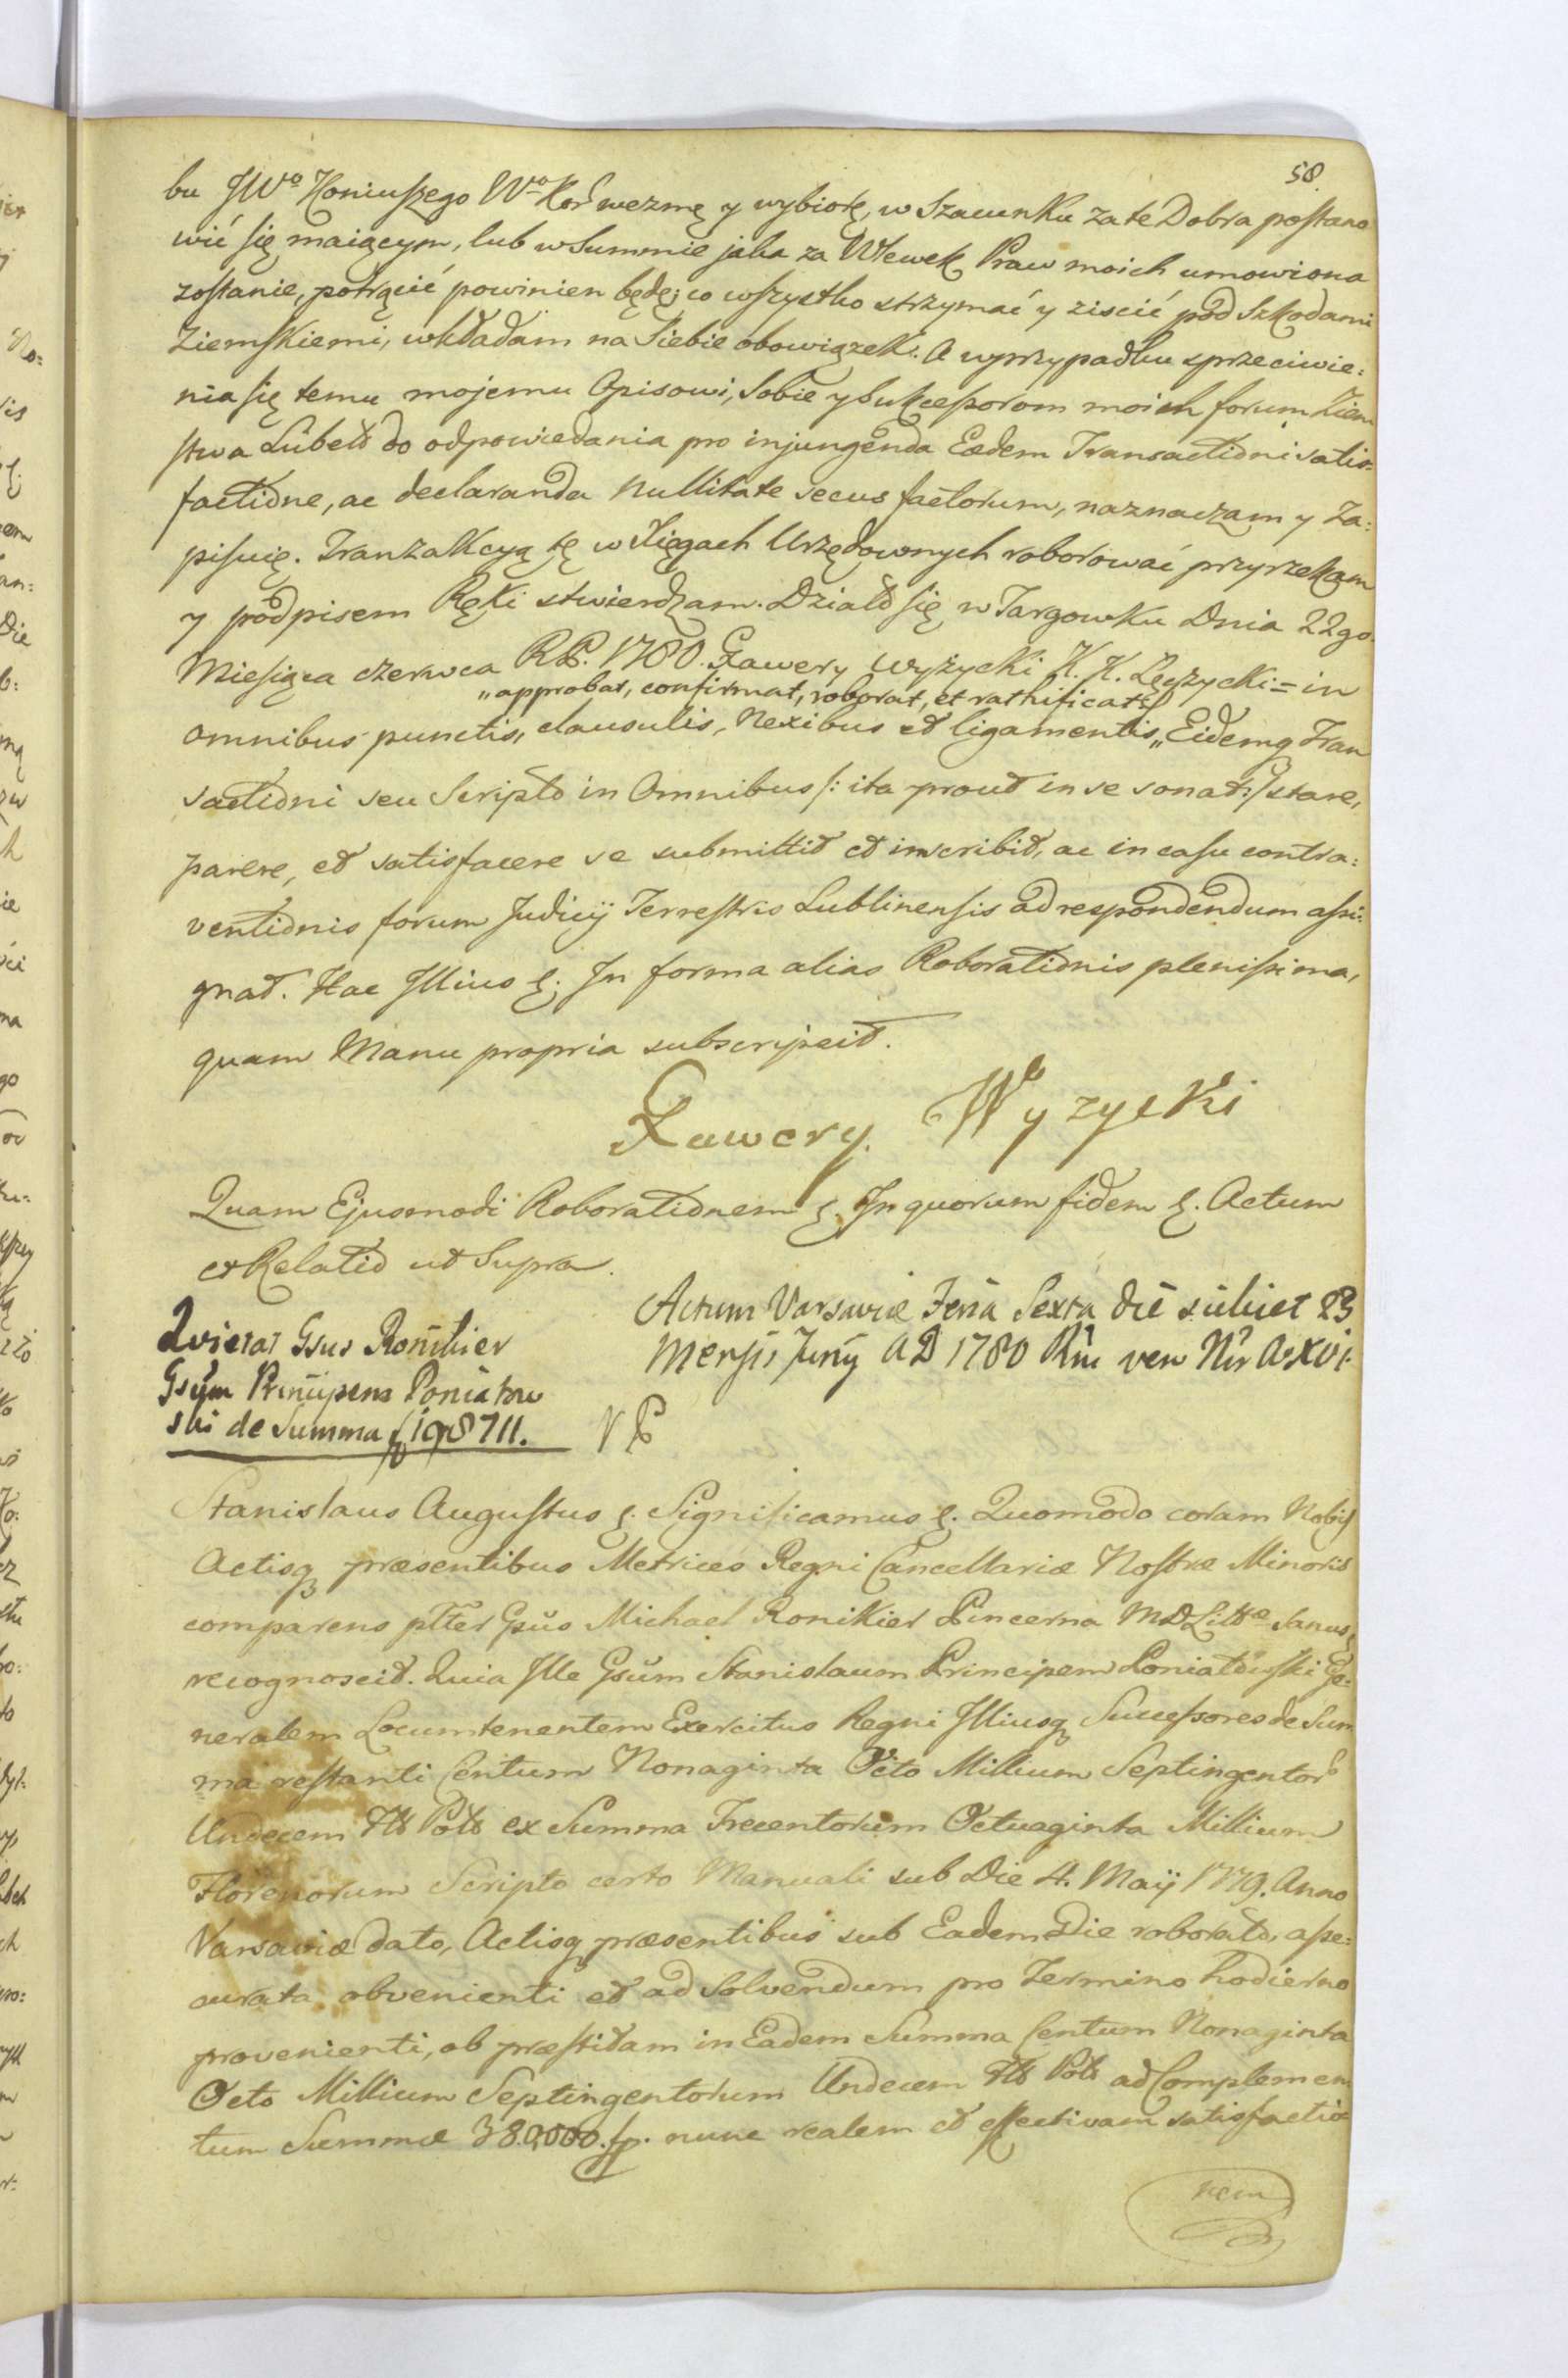 58.
bu JWo Koniuszego Wo Kor wezmę y wybiorę, w Szacunku za te Dobra postano
wić się maiącym, lub w Summie jaka za Wlewek Praw moich umowiona
zostanie, potrącić powinien będę; co wszystko strzymać y ziscić pod Szkodami
Ziemskiemi, wkładam na Siebie obowiązek. A w przypadku sprzeciwie:
nia się temu mojemu Opisowi, Sobie y Sukcessorom moich forum Ziem
stwa Lubels do odpowiedania pro injungenda Eædem Transactioni satis:
factione, ac declaranda Nullitate secus factorum, naznaczam y Za:
pisuię. Tranzakcyą tę w Xięgach Urzędownych roborować przyrzekam
y podpisem Ręki stwierdzam. Działo się w Targowku Dnia 22go
Miesiąca czerwca R.P. 1780. Xawery Wyżycki K. K. Łęczycki = in
„approbat, confirmat, roborat, et rathificat:/
omnibus punctis, clausulis, Nexibus et ligamentis„ Eidemq Tran
sactioni seu Scripto in Omnibus /: ita prout in se sonat :/ stare,
parere, et satisfacere se submittit et inscribit, ac in casu contra:
ventionis forum Judicij Terrestris Lublinensis ad respondendum assi:
gnat. Hac Illius &. In forma alias Roborationis plenissima,
quam Manu propria subscripsit.
Xawery. Wyzycki
Quam Ejusmodi Roborationem &. In quorum fidem &. Actum
et Relatio ut Supra.
Actum Varsaviæ Feria Sexta die scilicet 23
Mensis Junij AD 1780 Rni vero Nri Ao XVI.
Quietat Gsus Ronikier
Gsum Principem Poniatow
ski de Summa f 198711.
NP
Stanislaus Augustus &. Significamus &. Quomodo coram Nobis
Actisq præsentibus Metrices Regni Cancellariæ Nostræ Minoris
comparens ptter Gsus Michael Ronikier Pincerna MDLittæ Sanus &
recognoscit. Quia Ille Gsum Stanislaum Principem Poniatowski Ge:
neralem Locumtenentem Exercitus Regni Illiusq Successores de Sum
ma restanti Centum Nonaginta Octo Millium Septingentor
Undecem fls Pols ex Summa Trecentorum Octuaginta Millium
Florenorum Scripto certo Manuali sub Die 4. Maij 1779. Anno
Varsaviæ dato, Actisq præsentibus sub Eadem Die roborato, asse:
curata obvenienti et ad solvendum pro Termino hodierno
provenienti, ob præstitam in Eadem Summa Centum Nonaginta
Octo Millium Septingentorum Undecem fls Pols ad Complemen
tum Summæ 380,000. fp. nunc realem et effectivam satisfactio
nem